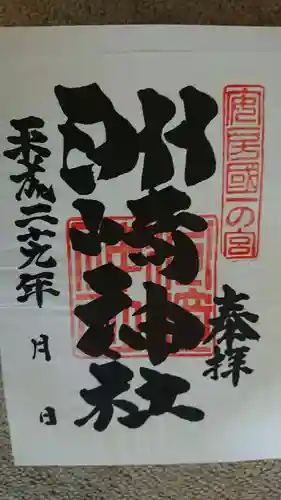 安房國一の宮
奉拝
洲崎神社
平成二十九年
月
日